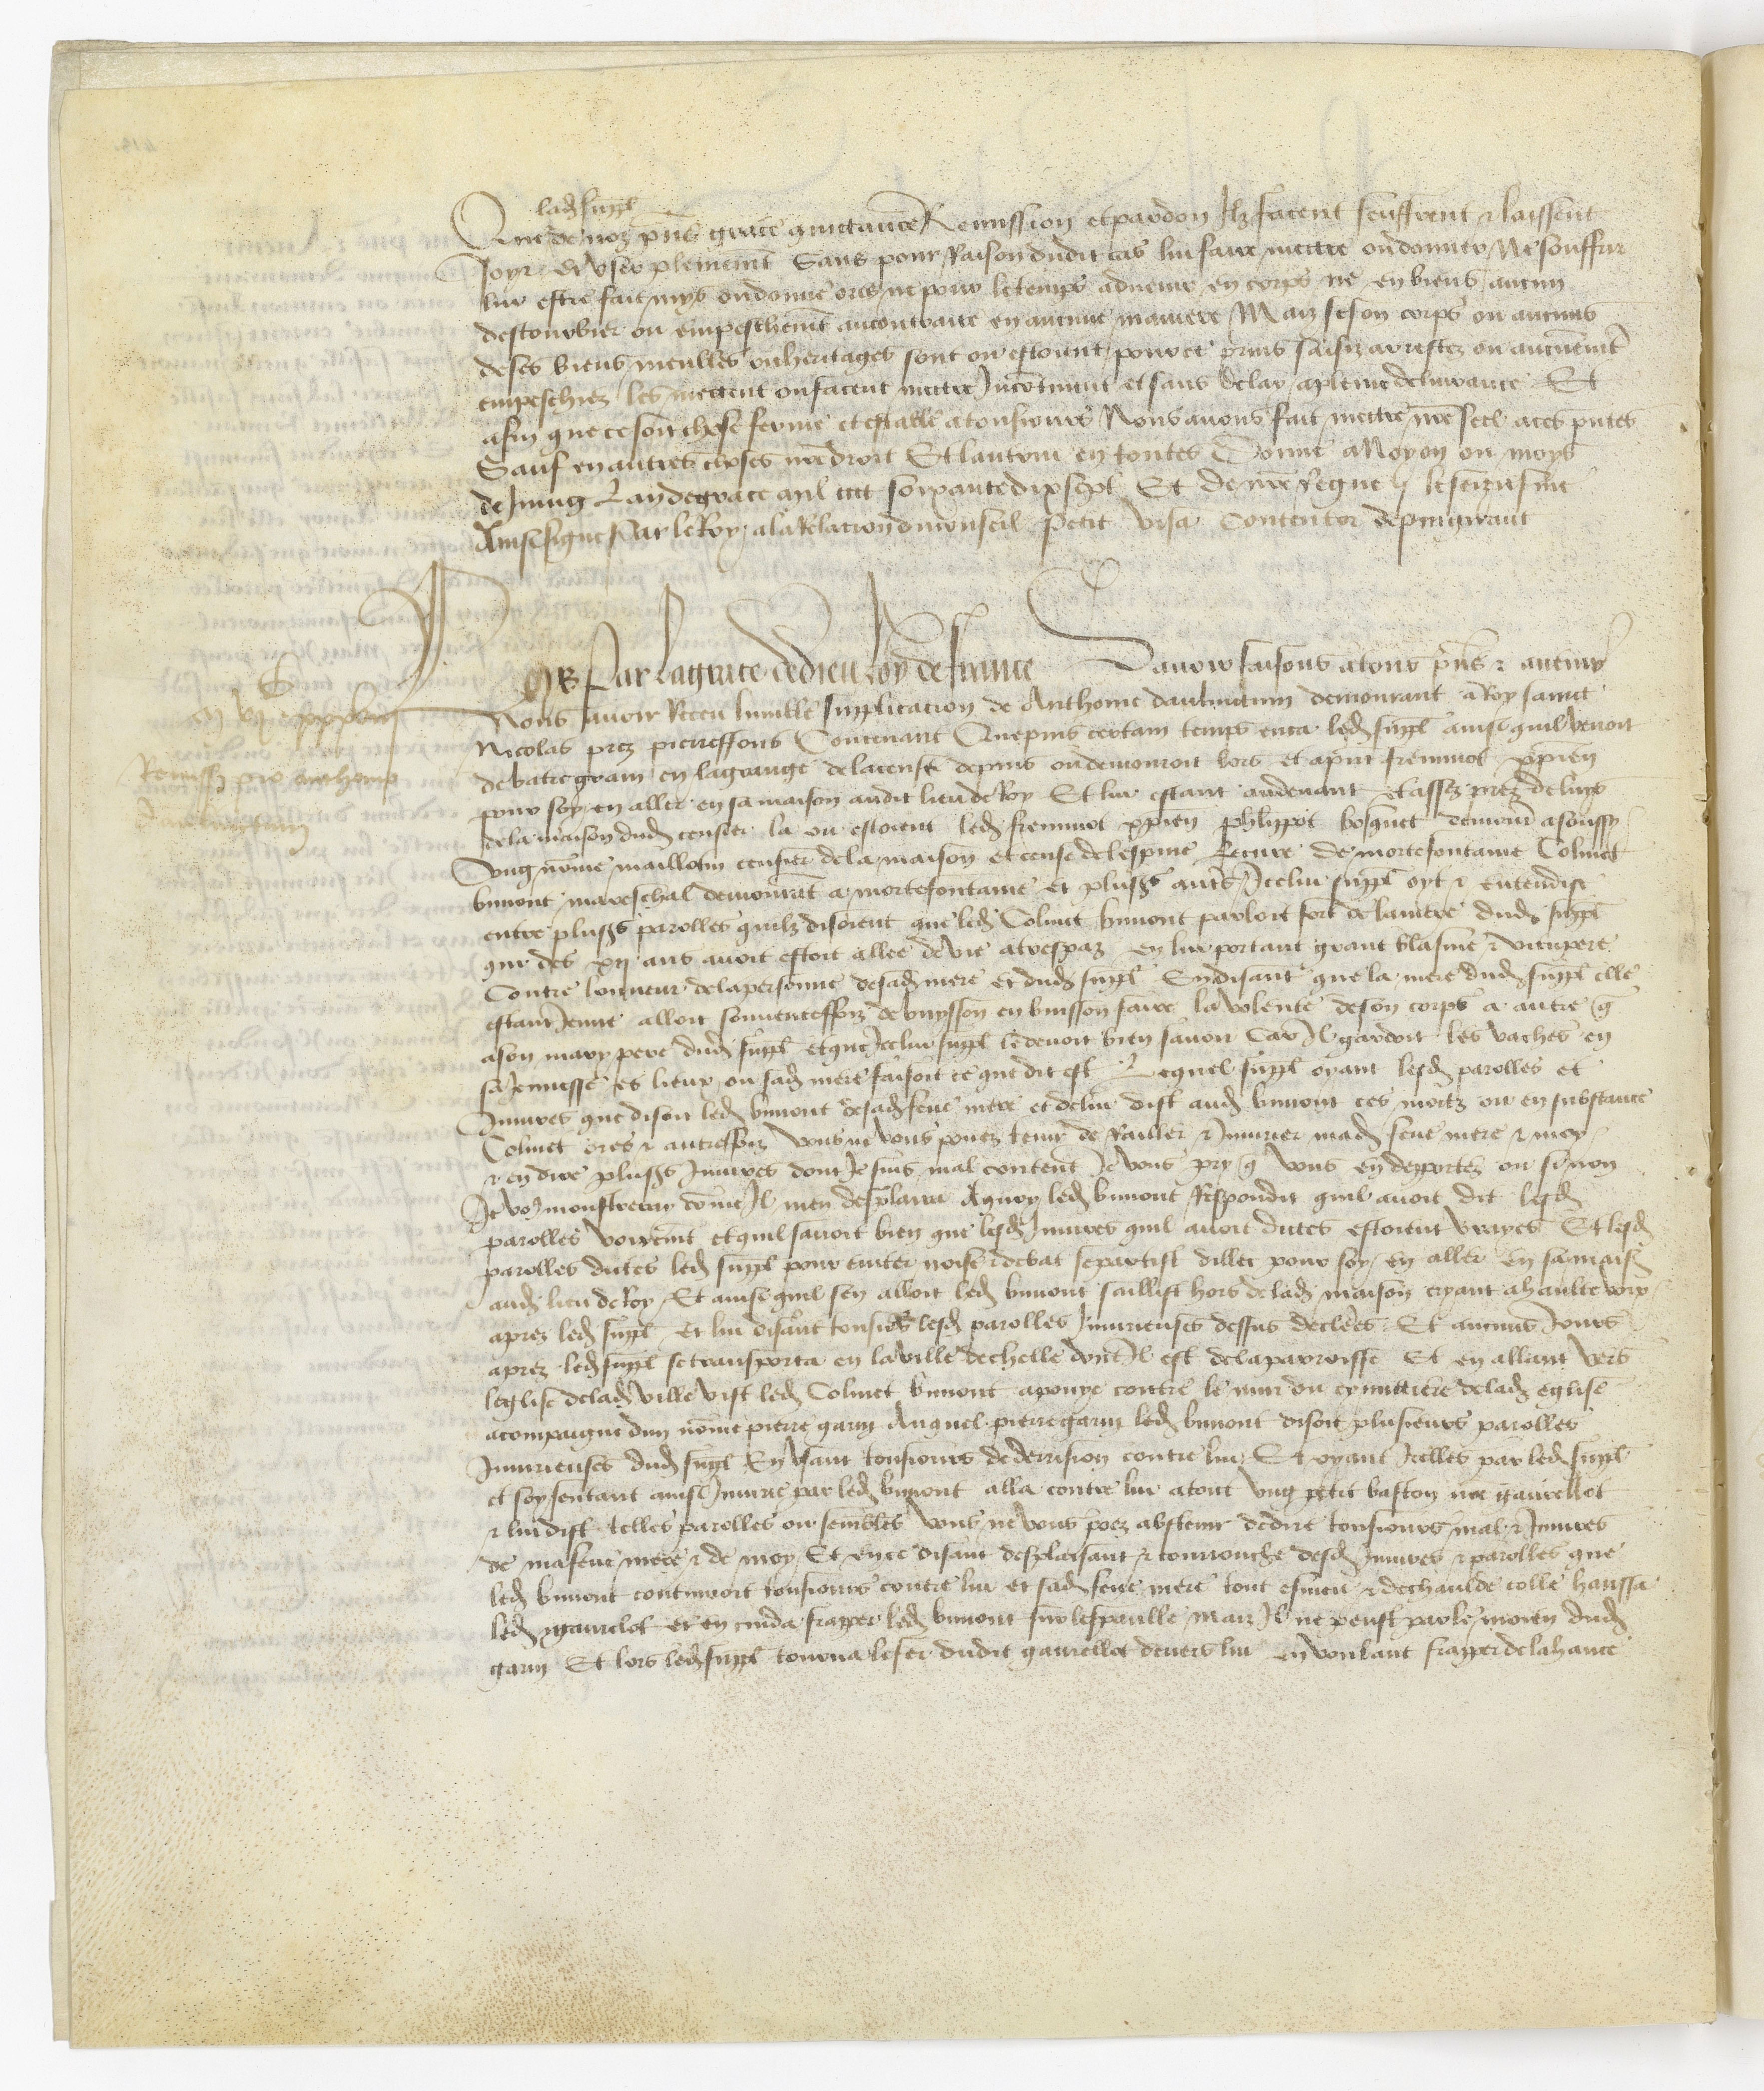 ledit suppl
Que de noz pns grace quictance Remission et pardon Ilz facent seuffrent & laissent
Joyr et user plainement Sans pour Raison dudit cas lui faire mettre ou donner Ne souffrir
lui estre fait mys ou donne ores ne pour le temps advenir en corps ne en biens aucun
destourbier ou empeschemt au contraire en aucune maniere Maiz se son corps ou aucuns
de ses biens meubles ou heritages sont ou estoient pource prins saisiz arrestez ou aucunemt
empeschiez les mettent ou facent mettre Incontinent et sans delay a pleine delivrance Et
afin que ce soit chose ferme et estable a tousjours Nous avons fait mettre nre seel a ces pntes
Sauf en autres choses nre droit Et lautrui en toutes Donne a Noyon ou moys
de Juing Lan de grace mil cccc soixante dix sept Et de nre regne le seiziesme
Ainsi signe Par le Roy a la Relacion du conseil Petit visa Contentor
Loys Par la grace de dieu Roy de france Savoir faisons a tous pns & avenir
Nous avoir Receu humble supplicacion de Anthoine demourant a Roy saint
Nicolas prez pierreffons Contenant Que puis certain temps enca led suppl ainsi quil venoit
de batre grain en la grange de la cense ou demouroit lors freminot xpien
pour soy en aller en sa maison audit lieu de Roy Et lui estant au devant et assez prez de luys
de la maison dud censier la ou estoient led freminot xpien phlippot bosquet demour a soussy
Ung nome maillotin censier de la maison et cense de lespine Le cure de mortefontaine Colinet
bimont mareschal demourat a mortefontaine et plusrs autrs Icelui suppl oyt & entendist
entre plusrs parolles quilz disoient que led Colinet bimont parloit fort de la mere dud suppl
qui des xij ans avoit estoit allee de vie a trespaz en lui portant grant blasme & vitupere
Contre lonneur de la personne de sad mere et dud suppl En disant que la mere dud suppl elle
estant Jeune alloit souventeffoiz de buysson en buisson faire la volente de son corps a autre q
a son mary pere dud suppl et que Icelui suppl le devoit bien savoir Car Il gardoit les vaches en
sa Jeunesse es lieux ou sad mere faisoit ce que dit est Lequel suppl oyant lesd parolles et
Injures que disoit led bimont de sad feue mere et de lui dist aud bimont ces motz ou en substance
Colinet ores & autreffoiz vous ne vous povez tenir de Railler & Injurier mad feue mere & moy
& en dire plusrs Injures dont Je suis mal content Je vous pry q vous en depportez ou sinon
Je vo monstreray come Il men desplaira A quoy led bimont Respondit quil avoit dit lesd
parolles voiremt et quil savoit bien que lesd Injures quil avoit dites estoient vrayes Et lesd
parolles dites led suppl pour eviter noise & debat se partist dillec pour soy en aller en sa maison
aud lieu de Roy Et ainsi quil sen alloit led bimont saillist hors de lad maison cryant a haulte voix
aprez led suppl Et lui disant tousjrs lesd parolles Injurieuses dessus declrees Et aucuns Jours
aprez led suppl se transporta en la ville de chelle dont Il est de la parroisse Et en allant vers
leglise de lad ville vist led Colinet bimont apouye contre le mur du cymittiere de lad eglise
acompaigne dun nome pierre garin Auquel pierre garin led bimont disoit plusieurs parolles
Injurieuses dud suppl En usant tousjours de derrision contre lui Et oyant Icelles par led suppl
et soy sentant ainsi Injurie par led bimont alla contre lui atout ung petit baston nre gavrellot
& lui dist telles parolles ou semblabls vous ne vous povez abstenir de dire tousjours mal & Injures
de ma feue mere & de moy Et en ce disant desplaisant & courrouche desd Injures & parolles que
led bimont continuoit tousjours contre lui et sad feue mere tout esmeu & de chaulde colle haussa
led gavrelot et en cuida frapper led bimont sur lespaulle maiz Il ne peust par le moien dud
garin Et lors led suppl tourna le fer dudit gavrellot devers lui en voulant frapper de la hance